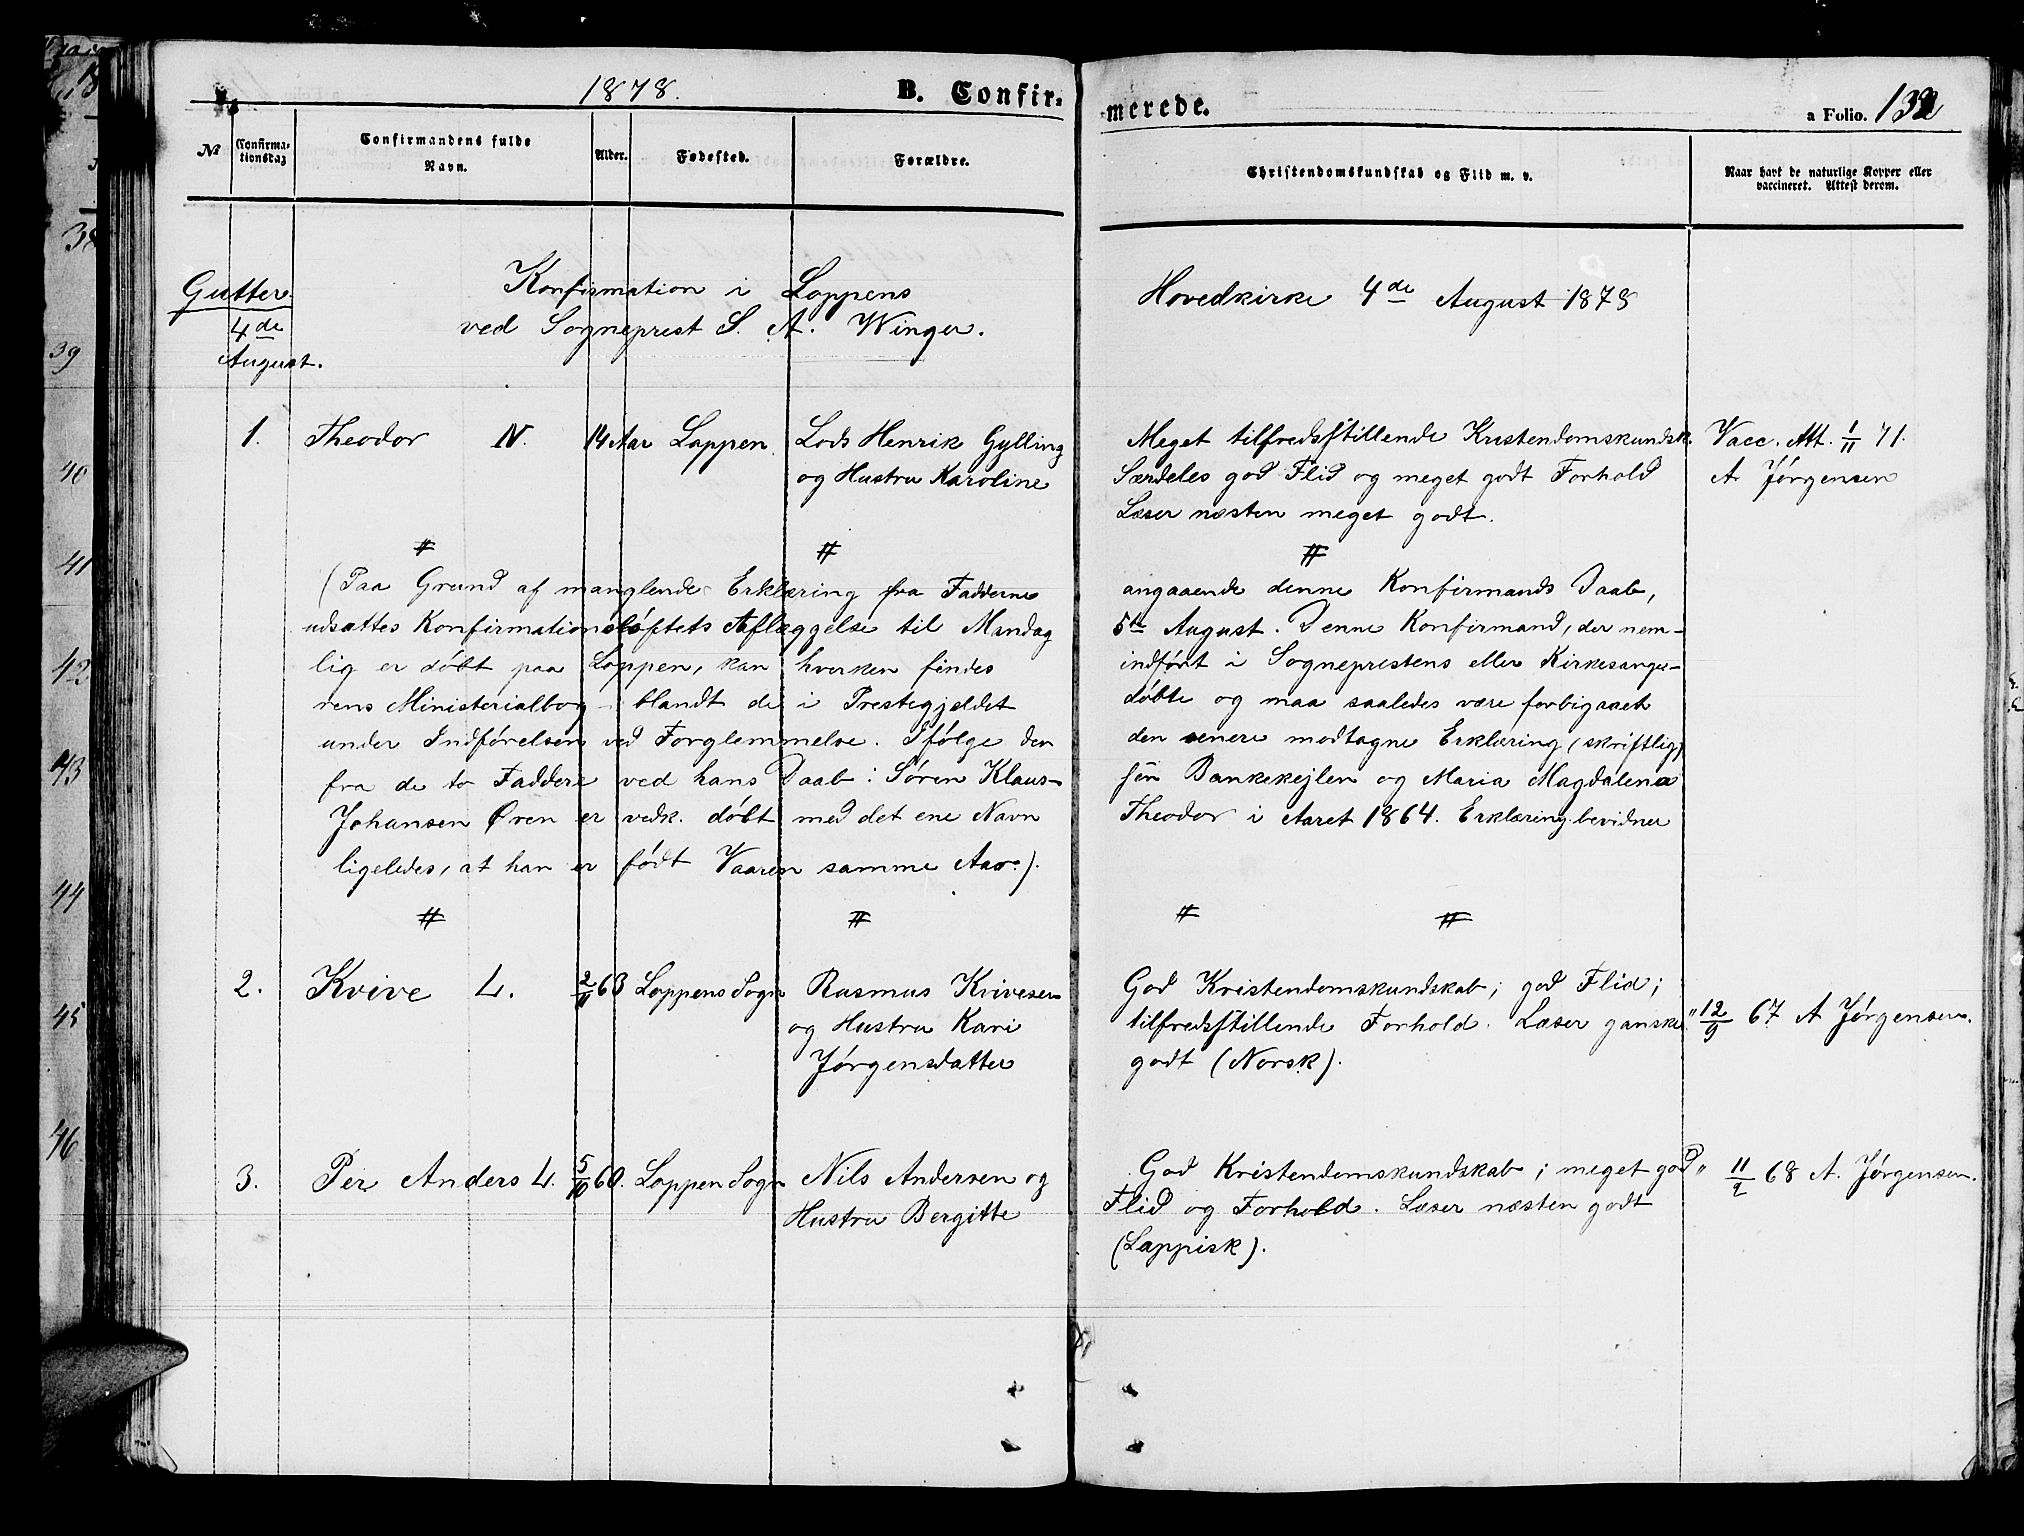 1878.
B. Confirmerede.
a Folio. 132
No
Confirmationsdag
Confirmandens fulde Navn.
Alder.
Fødested.
Forældre.
Christendomskundskab og Flid m. v.
Naar havt de naturlige Kopper eller vaccineret. Attest derom.
Gutter
4de
August.
Konfirmation i Loppens Hovedkirke 4de August 1878
ved Sogneprest S. A. Winger.
1. Theodor N. 14 Aar Loppen. Lods Henrik Gylling
og Hustru Karoline
Meget tilfredsstillende Kristendomskundsk.
Særdeles god Flid og meget godt Forhold
Læser næsten meget godt.
Vacc. Att. 1/11 71.
A Jørgensen
(Paa Grund af manglende Erklæring fra Fadderne angaaende denne Konfirmands Daab,
udsættes Konfirmationsløftets Aflæggelse til Mandag 5te August. Denne Konfirmand, der nem-
lig er døbt paa Loppen, kan hverken findes indført i Sogneprestens eller Kirkesange-
rens Ministerialbog blandt de i Prestegjeldet døbte og maa saaledes være forbigaaet
under Indførelsen ved Forglemmelse. Ifølge den den senere modtagne Erklæring (skriftlig)
fra de to Faddere ved hans Daab: Søren Klaus- sen Bankekejlen og Maria Magdalena
Johansen Øren er vedk. døbt med det ene Navn Theodor i Aaret 1864. Erklæring bevidner
ligeledes, at han er født Vaaren samme Aar.).
2. Kvive L. 2/11 63 Loppens Sogn Rasmus Krivesen
og Hustru Kari
Jørgensdatter
God Kristendomskundskab; god Flid;
tilfredsstillende Forhold. Læser ganske
godt (Norsk).
" 12/9 67 A Jørgensen.
3. Per Anders L. 5/10 60. Loppen Sogn Nils Andersen og
Hustru Bergitte
God Kristendomskundskab; meget god
Flid og Forhold. Læser næsten godt
(Lappisk).
" 11/2 68 A. Jørgensen.
38
39
40
41
42
43
44
45
46